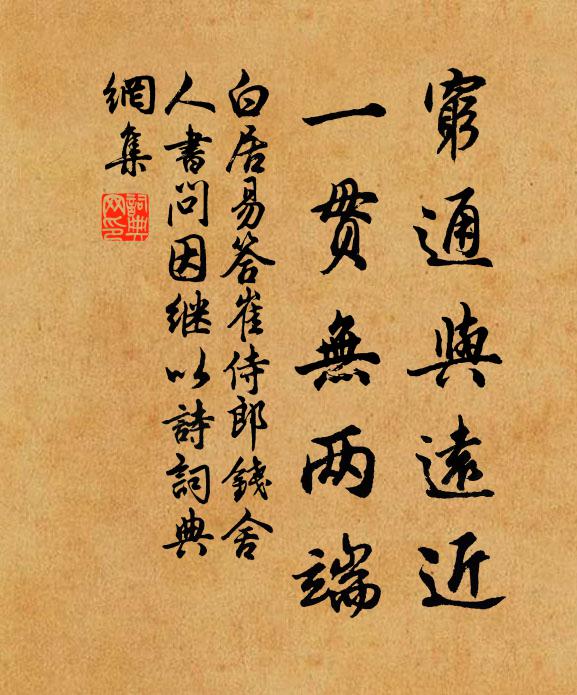 窮通與遠近
一貫無两端
白居易答崔侍郎錢舍
人書問因继以詩詞典
網集
詞典網印